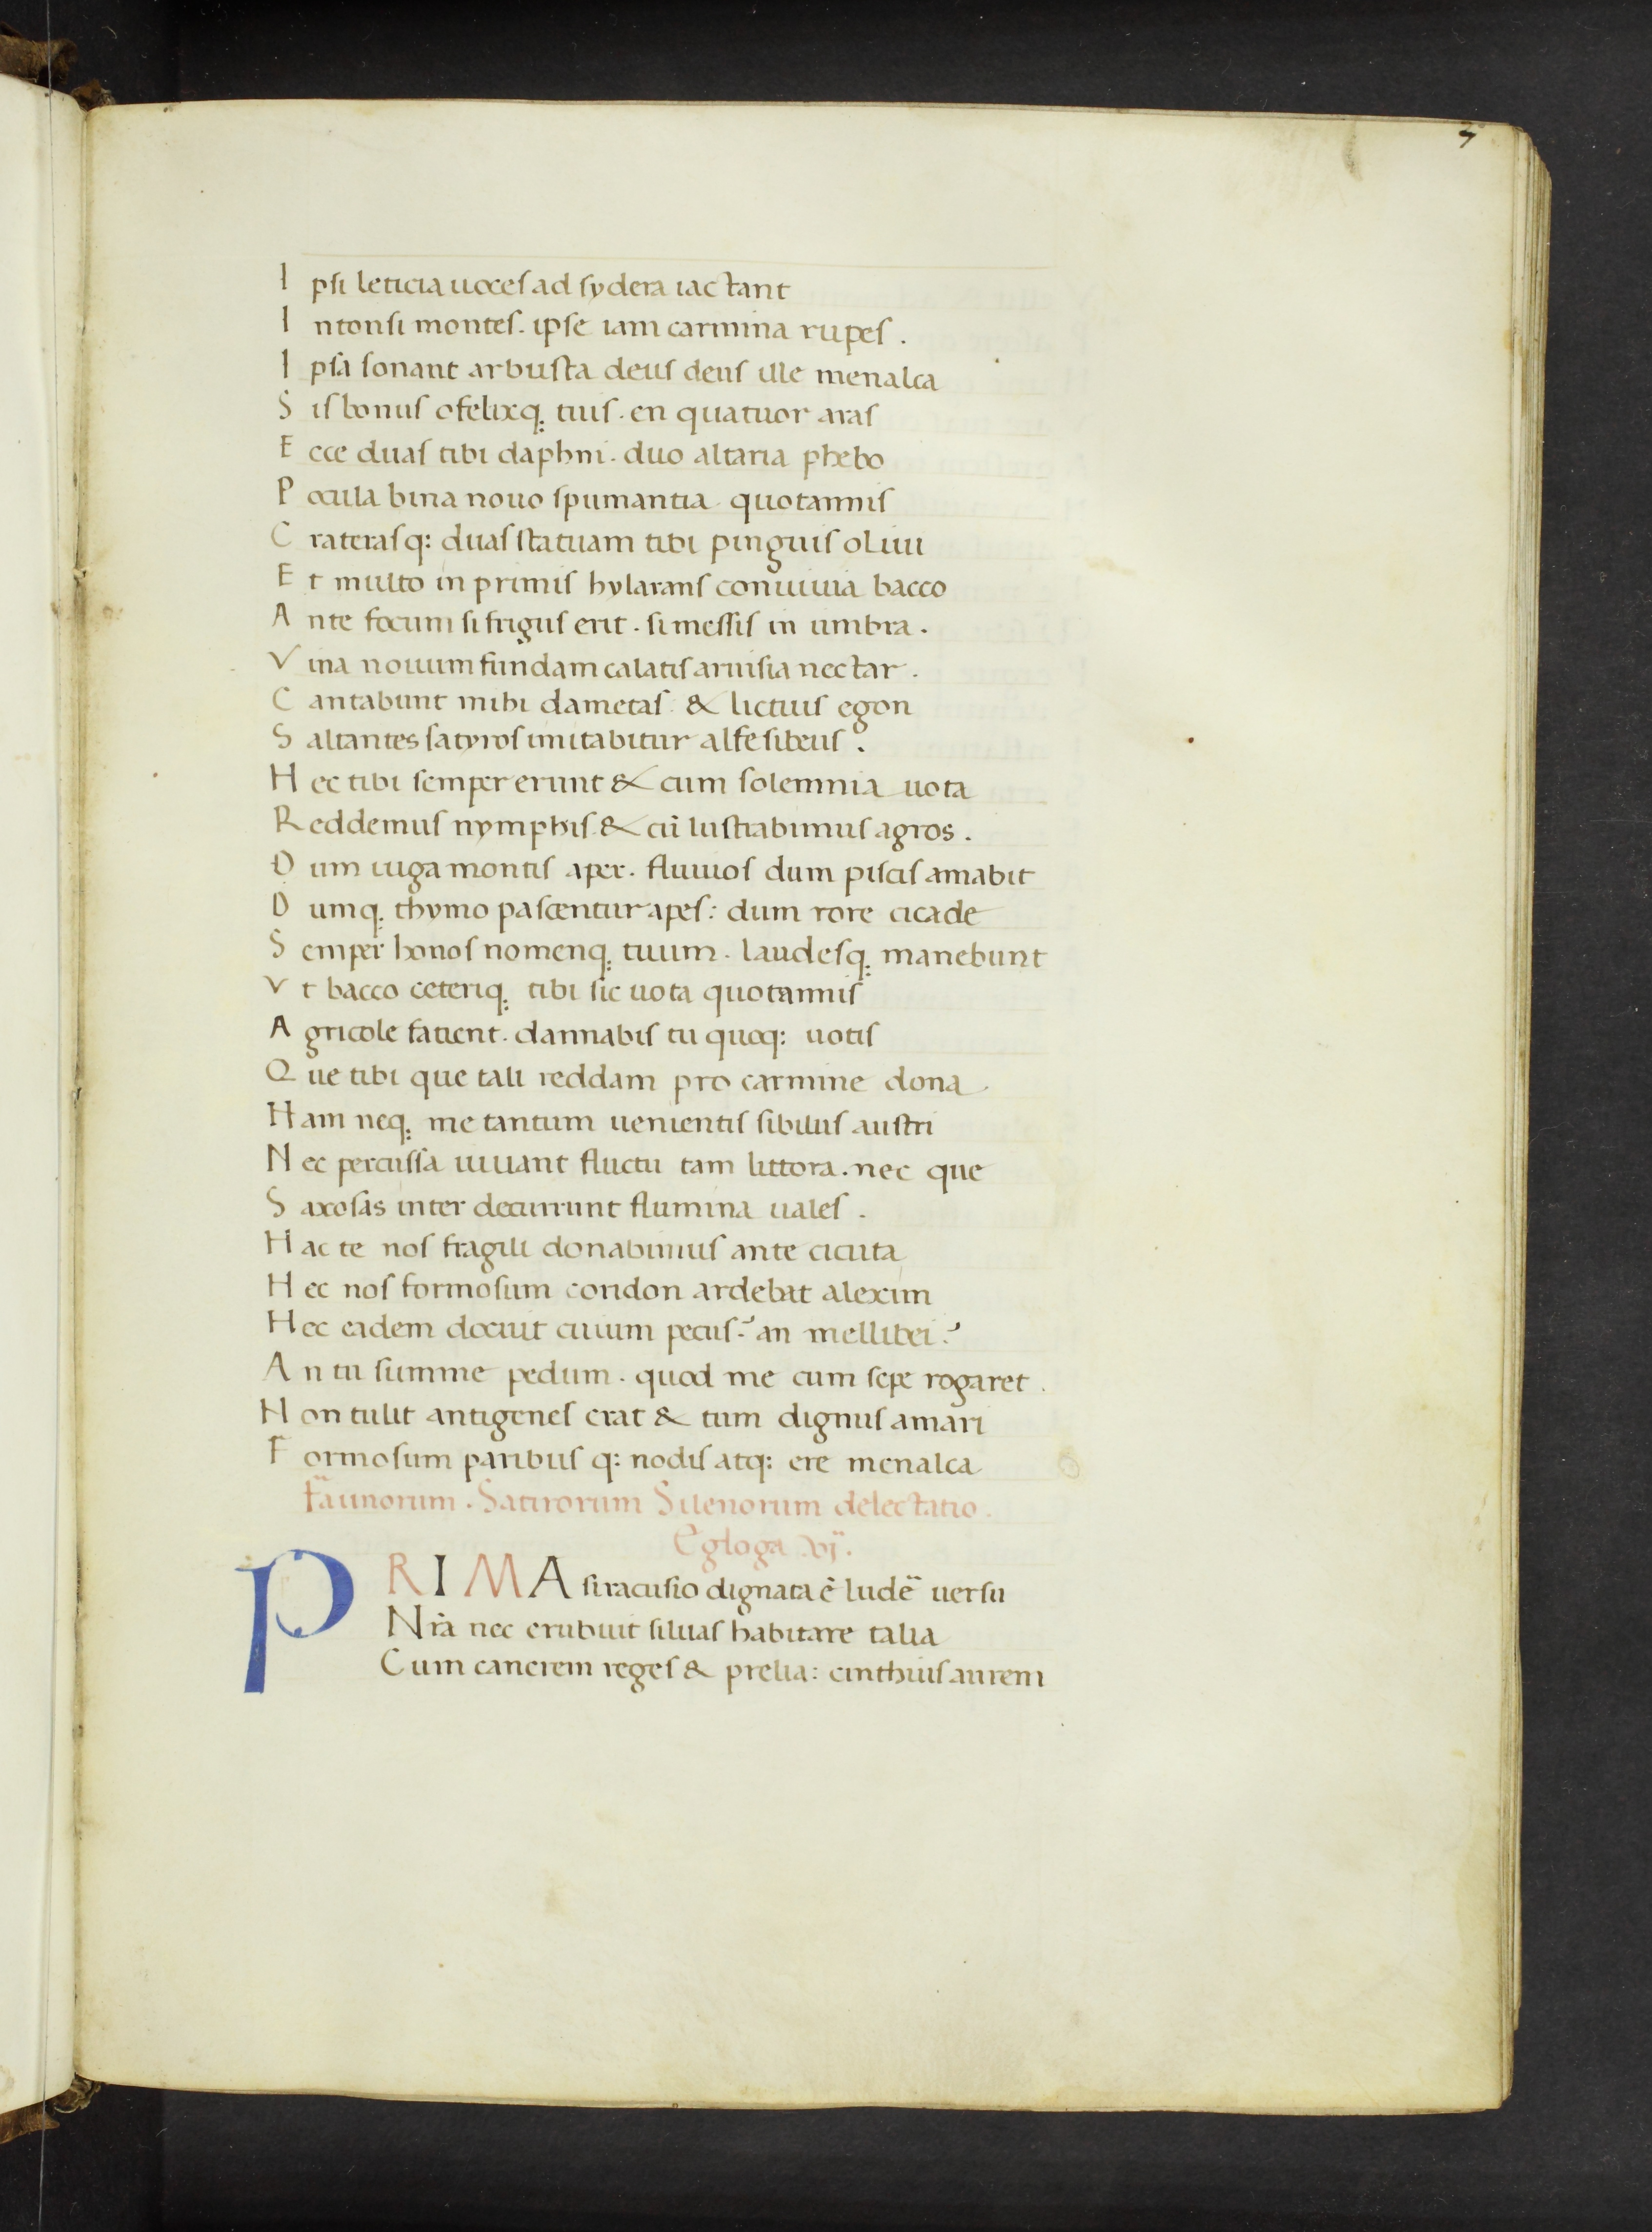 7
Ipsi leticia uoces ad sydera iactant
Intonsi montes. ipse iam carmina rupes.
Ipsa sonant arbusta deus deus ille menalca
Sis bonus ofelixq; tuis. en quatuor aras
Ecce duas tibi daphni. duo altaria phebo
Pocula bina nouo spumantia quotannis
Craterasq: duas statuam tibi pinguis oliui
Et multo in primis hylarans conuiuia bacco
Ante focum si frigus erit. si messis in umbra.
Vina nouum fundam calatis aruisia nectar.
Cantabunt mihi dametas & lictius egon
Saltantes satyros imitabitur alfesibeus.
Hec tibi semper erunt & cum solemnia uota
Reddemus nymphis & cū lustrabimus agros.
Dum iuga montis aper. fluuios dum piscis amabit
Dumq; thymo pascentur apes: dum rore cicade
Semper honos nomenq; tuum. laudesq; manebunt
Vt bacco ceteriq; tibi sic uota quotannis
Agricole fatient. dannabis tu quoq: uotis
Que tibi que tali reddam pro carmine dona.
Nam neq; me tantum uenientis sibilus austri
Nec percussa iuuant fluctu tam littora. nec que
Saxosas inter decurrunt flumina uales.
Hac te nos fragili donabimus ante cicuta
Hec nos formosum coridon ardebat alexim
Hec eadem docuit cuium pecus? an mellibei?
An tu summe pedum. quod me cum sepe rogaret.
Non tulit antigenes erat & tum dignus amari
Formosum paribus q: nodis atq: ere menalca
Faunorum. Satirorum Silenorum delectatio.
Egloga .vj.
PRIMA siracusio dignata ē ludē uersu
Nrā nec erubuit siluas habitare talia
Cum canerem reges & prelia: cinthius aurem